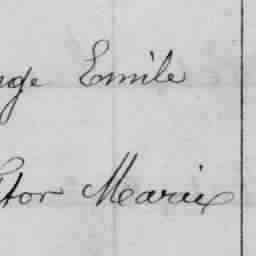 nge Emile
ctor Marie